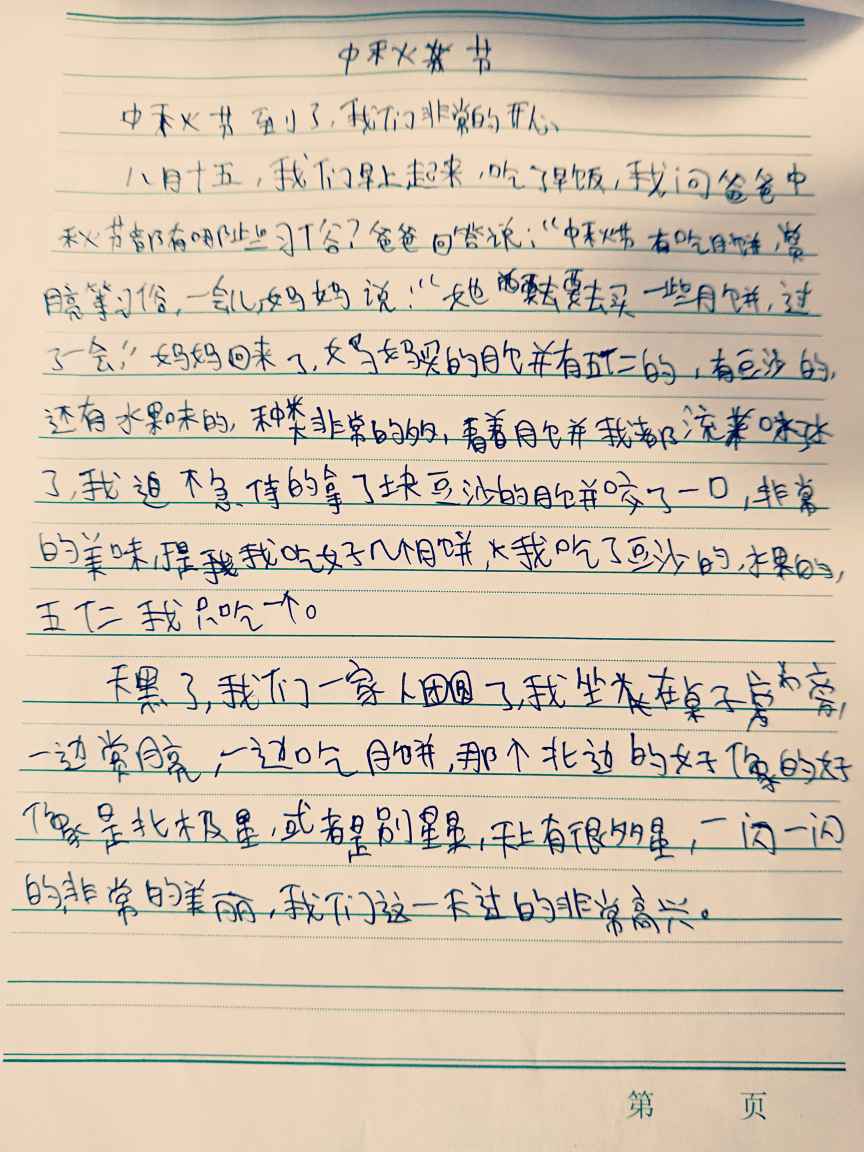 中秋节
中秋节到了,我们非常的开心、
八月十五,我们早上起来,吃了早饭,我问爸爸中
秋节都有哪些习俗?爸爸回答说:“中秋节有吃月饼,赏
月亮等习俗,一会儿,妈妈说:“她要去买一些月饼,过
了一会!”妈妈回来了,妈妈买的月饼有五仁的,有豆沙的,
还有水果味的,种类非常的多,看着月饼我都流
了,我迫不急侍的拿了块豆沙的月饼咬了一口,非常
的美味,我吃好几个月饼,我吃了豆沙的,水果的,
五仁我只吃一个。
天黑了,我们一家人团圆了,我坐在桌子旁
一边赏月亮,一边吃月饼,那个北边的好像的好
像是北极星,或者是别星星,天上有很多星,一闪一闪
的,非常的美丽,我们这一天过的非常高兴。
第 页